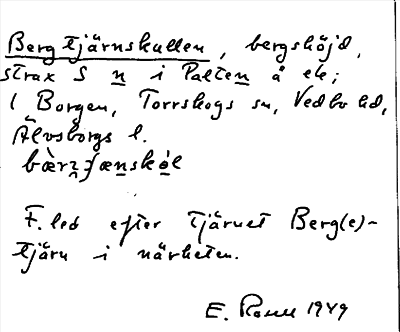 Bergtjärnskullen, bergshöjd,
strax S n i Palten å ek;
l Borgen, Torrskogs sn, Vedbo hd,
Älvsborgs l.
F.led efter tjärnet Berg(e)-
tjärn i närheten.
E. Rosell 1949